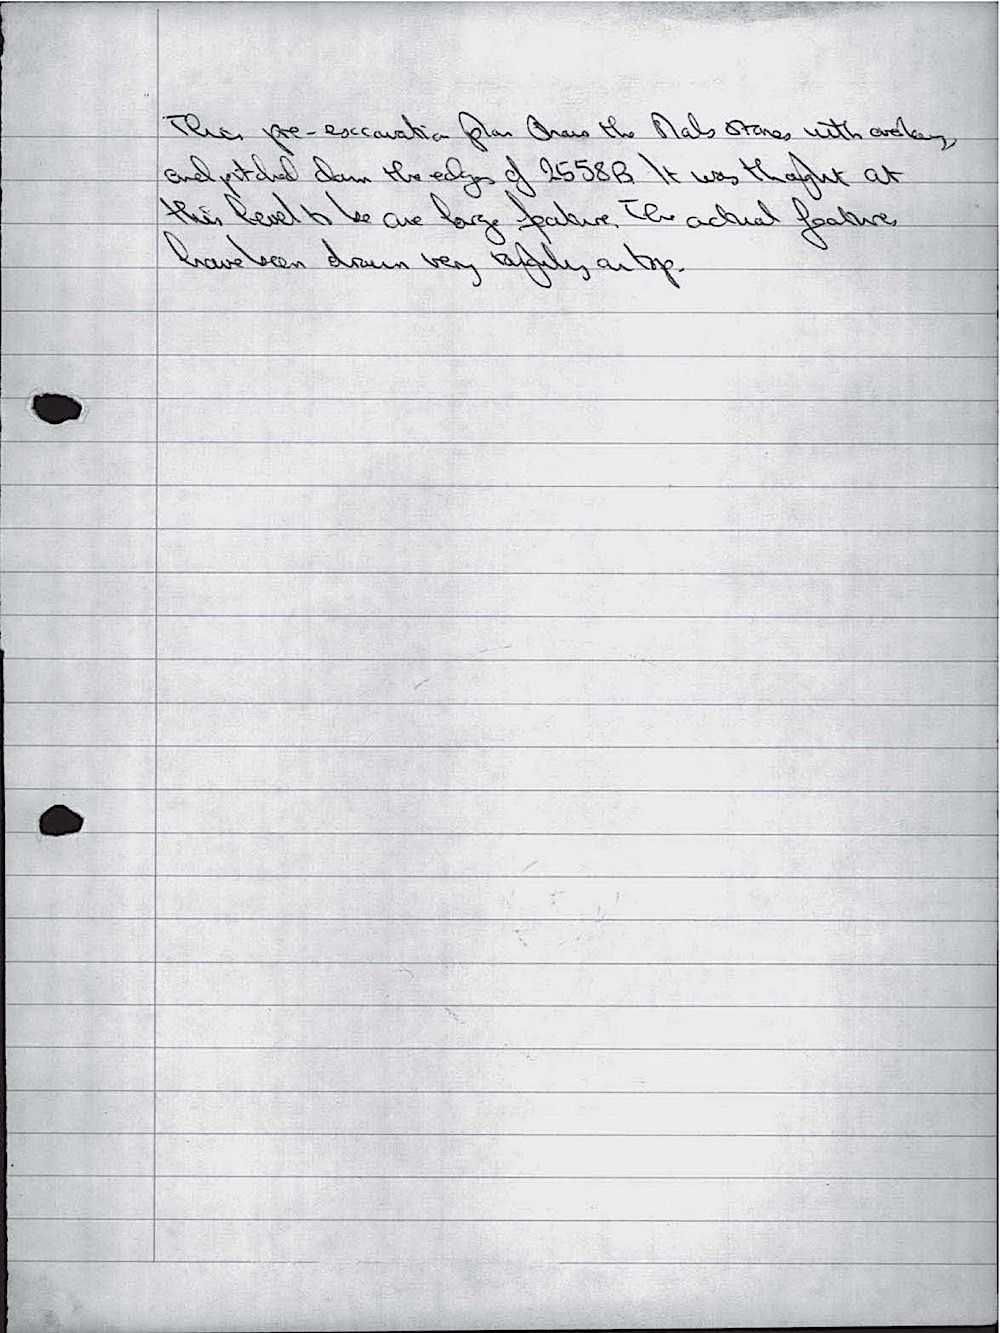 This pre-excavation plan shows the slabs stones with
and pitched down the edges of 2558B It was thought at
this level to be one large feature. The actual features
have been drawn very roughly on top.